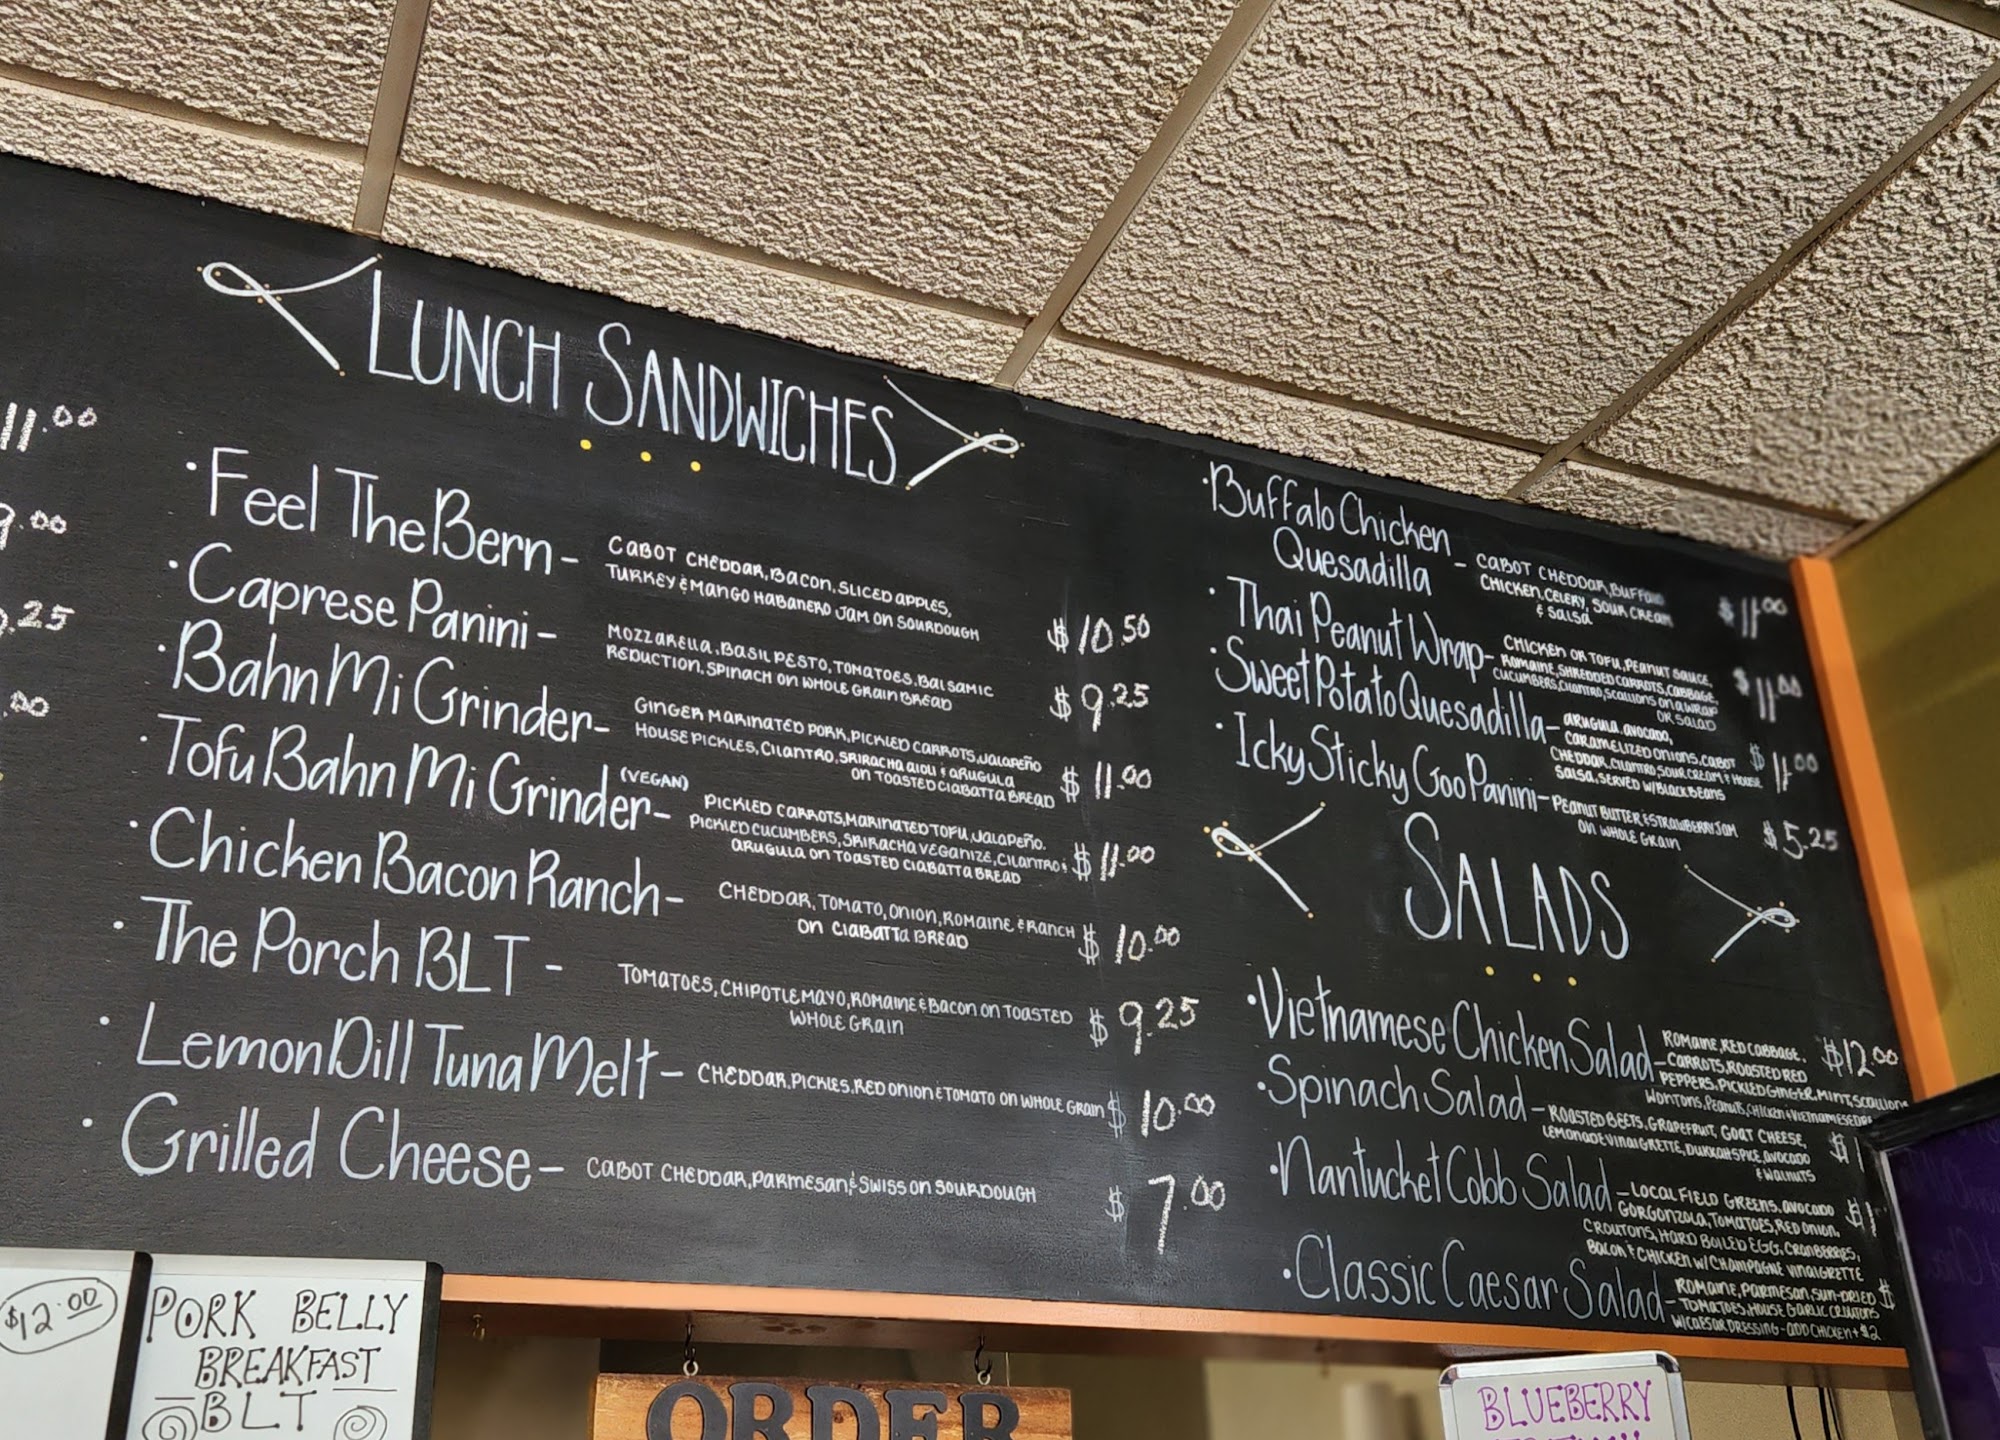 11.00
9.00
.25
.00
LUNCH SANDWICHES
·Feel The Bern - CABOT CHEDDAR, BACON, SLICED APPLES,
TURKEY & MANGO HABANERO JAM ON SOURDOUGH $10.50
·Caprese Panini - MOZZARELLA, BASIL PESTO, TOMATOES, BALSAMIC
REDUCTION, SPINACH ON WHOLE GRAIN BREAD $9.25
·Bahn Mi Grinder - GINGER MARINATED PORK, PICKLED CARROTS, JALAPEÑO
HOUSE PICKLES, CILANTRO, SRIRACHA AIOLI & ARUGULA
ON TOASTED CIABATTA BREAD $11.00
·Tofu Bahn Mi Grinder - (VEGAN) PICKLED CARROTS, MARINATED TOFU, JALAPEÑO.
PICKLED CUCUMBERS, SRIRACHA VEGANIZE, CILANTRO &
ARUGULA ON TOASTED CIABATTA BREAD $11.00
·Chicken Bacon Ranch - CHEDDAR, TOMATO, ONION, ROMAINE & RANCH
ON CIABATTA BREAD $10.00
·The Porch BLT - TOMATOES, CHIPOTLE MAYO, ROMAINE & BACON ON TOASTED
WHOLE GRAIN $9.25
·Lemon Dill Tuna Melt - CHEDDAR, PICKLES, RED ONION & TOMATO ON WHOLE GRAIN $10.00
·Grilled Cheese - CABOT CHEDDAR, PARMESAN, & SWISS ON SOURDOUGH $7.00
·Buffalo Chicken
Quesadilla - CABOT CHEDDAR, BUFFALO
CHICKEN, CELERY, SOUR CREAM
& SALSA $11.00
·Thai Peanut Wrap - CHICKEN OR TOFU, PEANUT SAUCE,
ROMAINE, SHREDDED CARROTS, CABBAGE,
CUCUMBERS, CILANTRO, SCALLIONS ON A WRAP
OR SALAD $11.00
·Sweet Potato Quesadilla - ARUGULA, AVOCADO,
CARAMELIZED ONIONS, CABOT
CHEDDAR, CILANTRO SOUR CREAM & HOUSE
SALSA, SERVED W/BLACK BEANS $11.00
·Icky Sticky Goo Panini - PEANUT BUTTER & STRAWBERRY JAM
ON WHOLE GRAIN $5.25
SALADS
·Vietnamese Chicken Salad - ROMAINE, RED CABBAGE,
CARROTS, ROASTED RED
PEPPERS, PICKLED GINGER, MINT, SCALLIONS
WONTONS, PEANUTS, CHICKEN & VIETNAMESE $12.00
·Spinach Salad - ROASTED BEETS, GRAPEFRUIT, GOAT CHEESE,
LEMONADE VINAIGRETTE, DUKKAH SPICE, AVOCADO
& WALNUTS $1
·Nantucket Cobb Salad - LOCAL FIELD GREENS, AVOCADO
GORGONZOLA, TOMATOES, RED ONION,
CROUTONS, HARD BOILED EGG, CRANBERRIES,
BACON & CHICKEN W/ CHAMPAGNE VINAIGRETTE $1
·Classic Caesar Salad - ROMAINE, PARMESAN, SUN-DRIED
TOMATOES, HOUSE GARLIC CROUTONS
W/CAESAR DRESSING - ADD CHICKEN + $2 $
$12.00
PORK BELLY
BREAKFAST
BLT
ORDER
BLUEBERRY